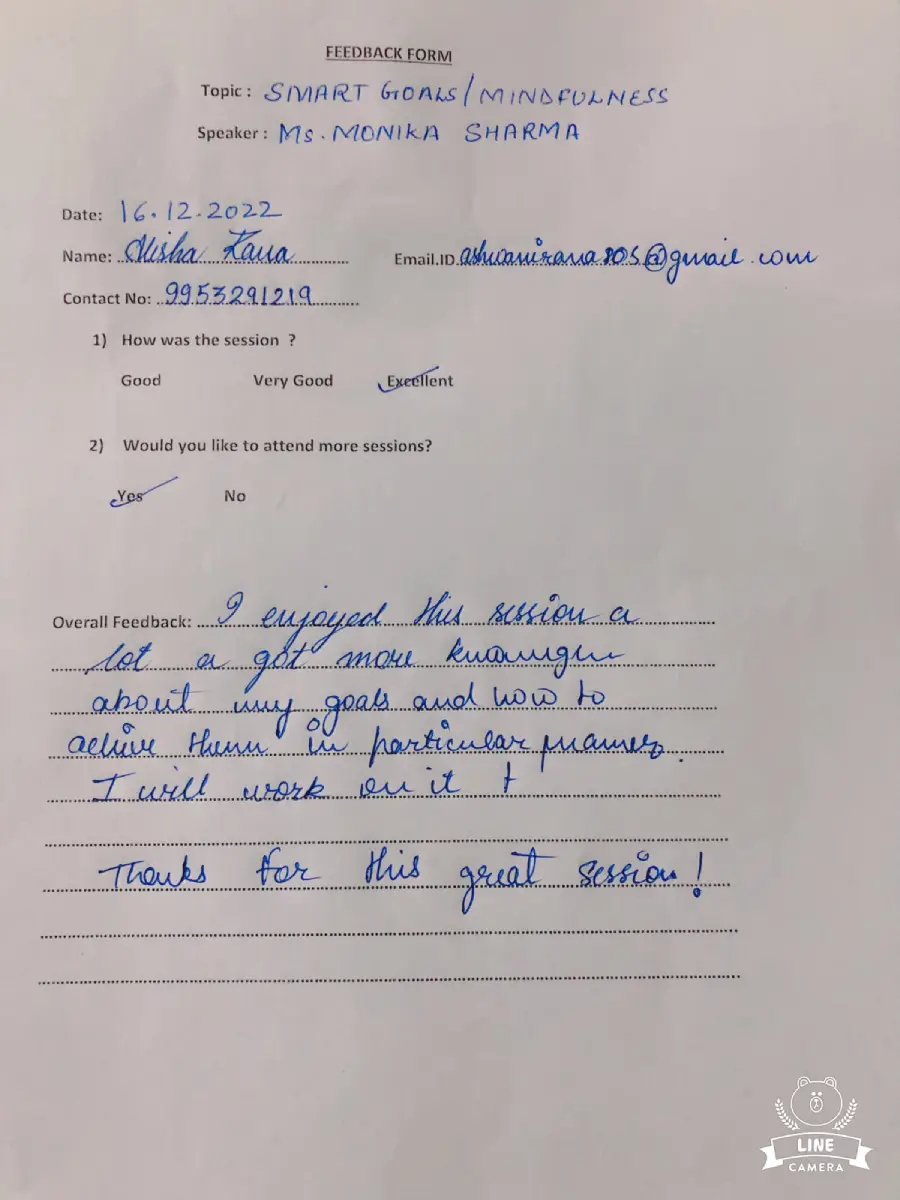 FEEDBACK FORM
Topic : SMART GOALS/MINDFULNESS
Speaker : Ms. MONIKA SHARMA
Date: 16.12.2022
Name: Nisha Rana Email.ID ashwanirana805@gmail.com
Contact No: 9953291219
1) How was the session ?
Good Very Good Excellent
2) Would you like to attend more sessions?
Yes No
Overall Feedback: I enjoyed this session a
lot a got more
about my goals and how to
achive them in particular
I will work on it
Thanks for this great session!
LINE
CAMERA